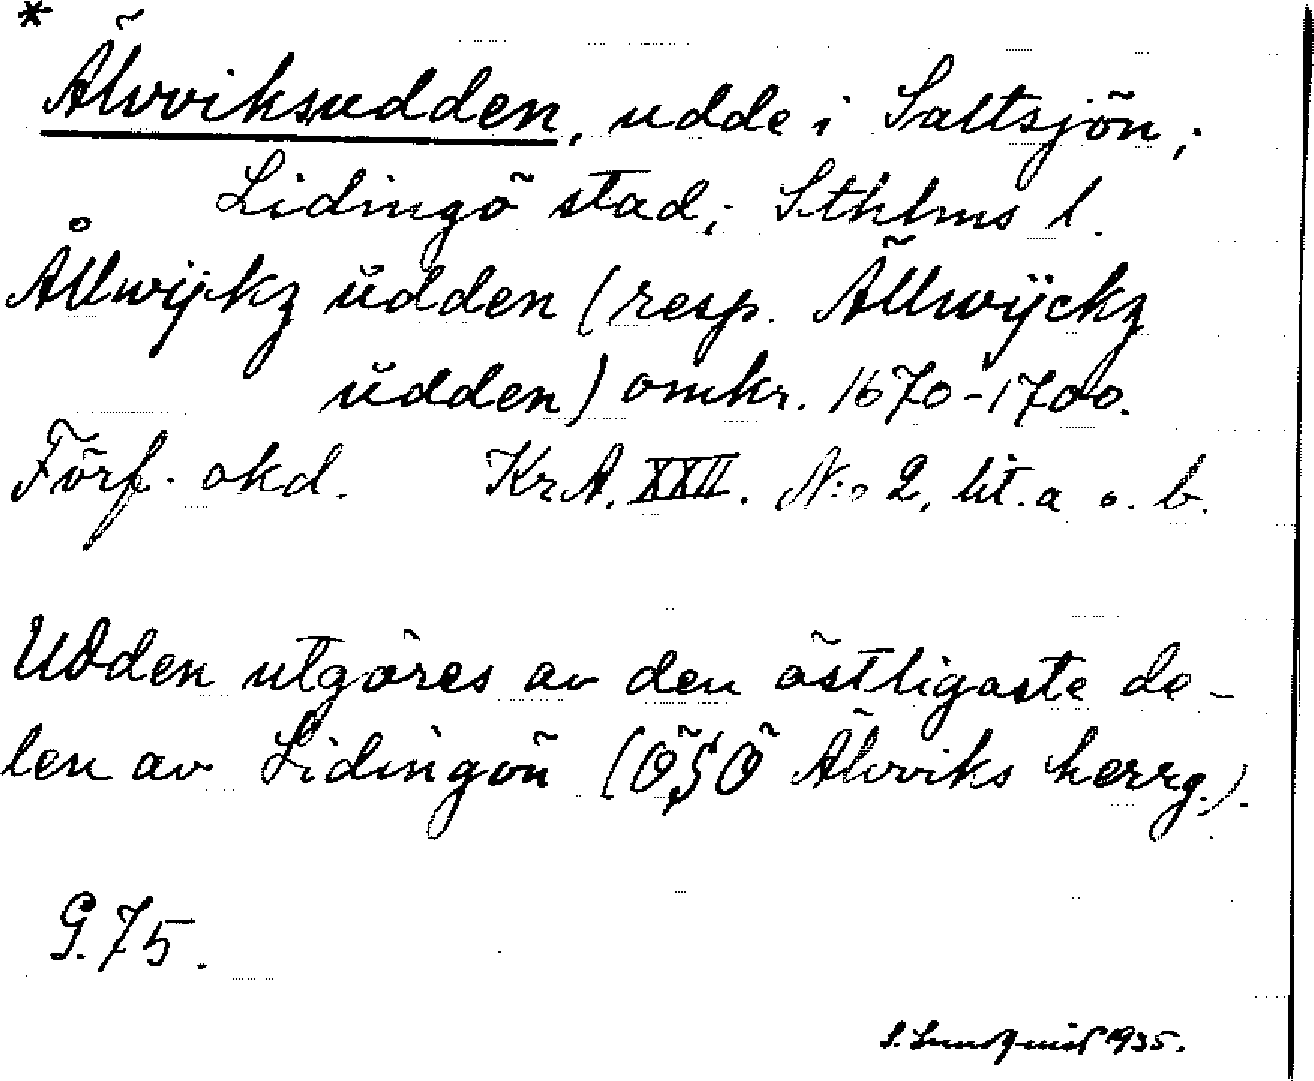 *
Älvviksudden, udde i Saltsjön;
Lidingö stad; Sthlms l.
Ållwijkz ŭdden (resp. Ällwijckz
ŭdden) omkr. 1670-1700.
Förf. okd. Kr A. XXII. N:o 2, lit. a o. b.
Udden utgöres av den östligaste de-
len av Lidingön (ÖSÖ Älvviks herrg.).
G. 75.
S. Lundquist 1935.